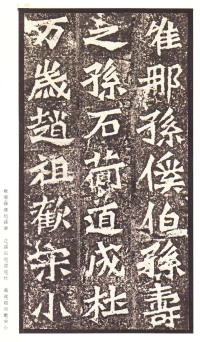 維那孫傒伯孫壽
之孫石荀道成杜
万歲趙祖歡宋小